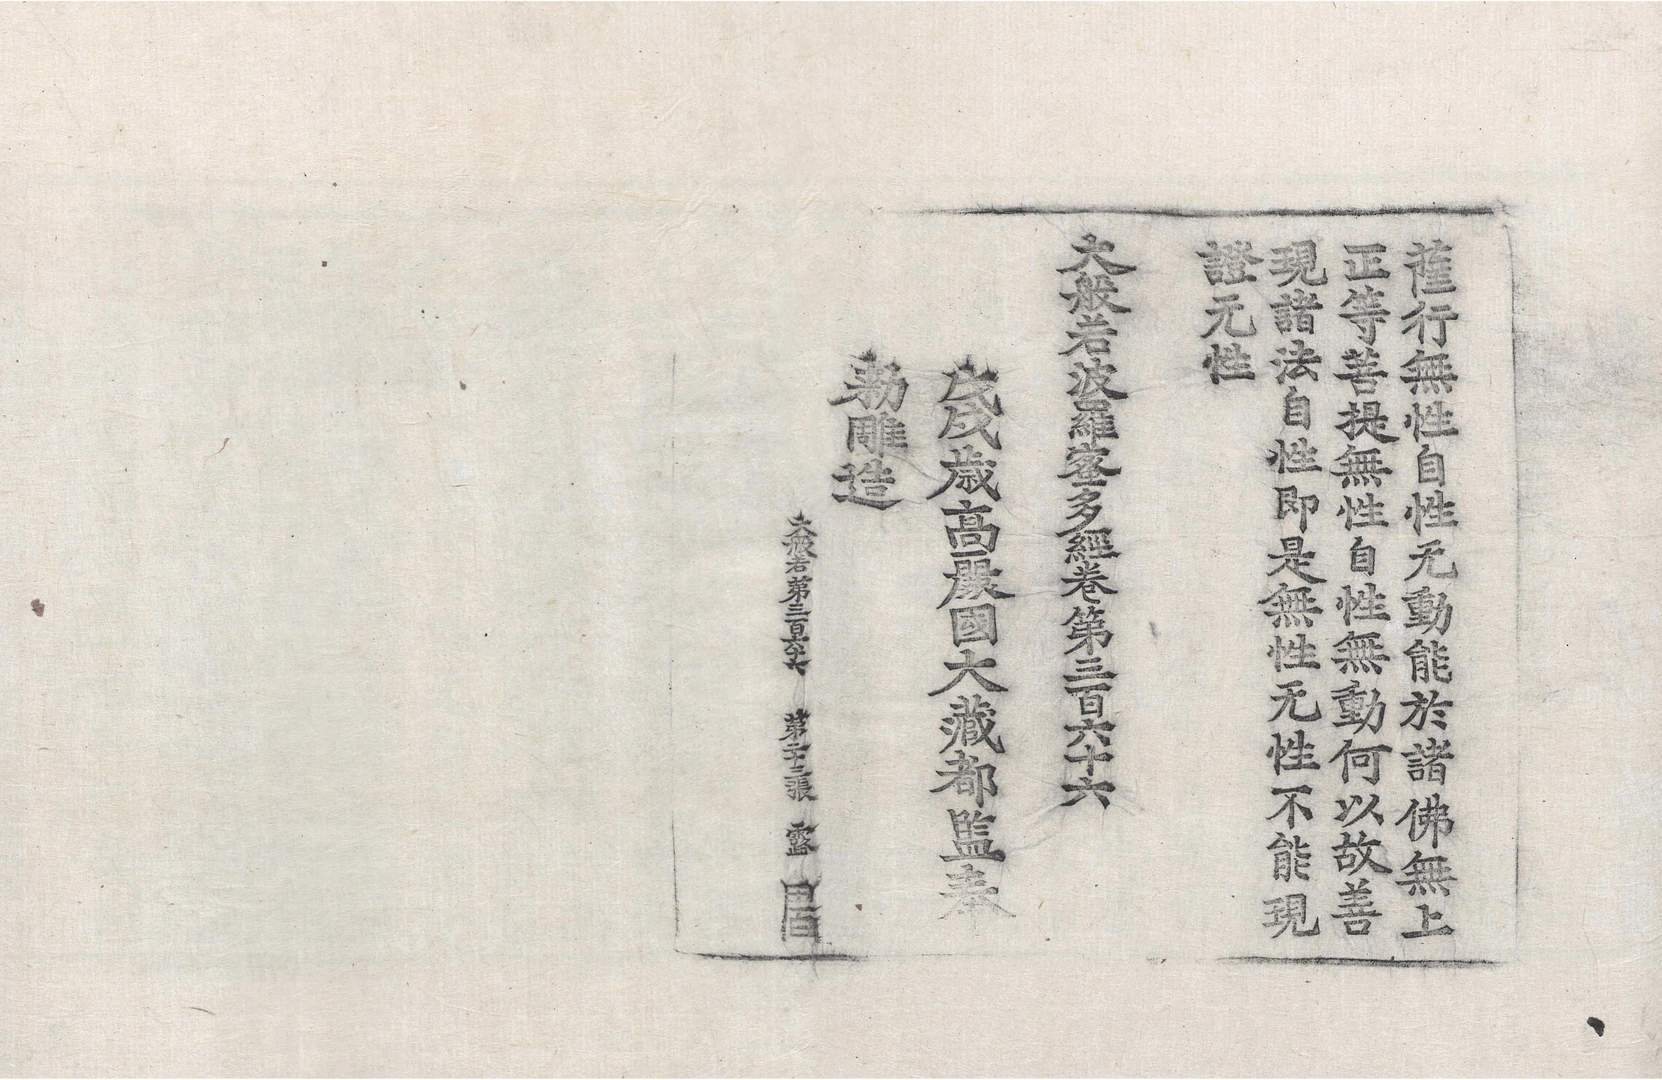 薩行無性自性无動能於諸佛無上
正等菩提無性自性無動何以故善
現諸法自性即是無性无性不能現
證无性
大般若波羅蜜多經卷第三百六十六
戊戌歲高麗國大藏都監奉
勑雕造
大般若第三百六十六 第二十三張 露